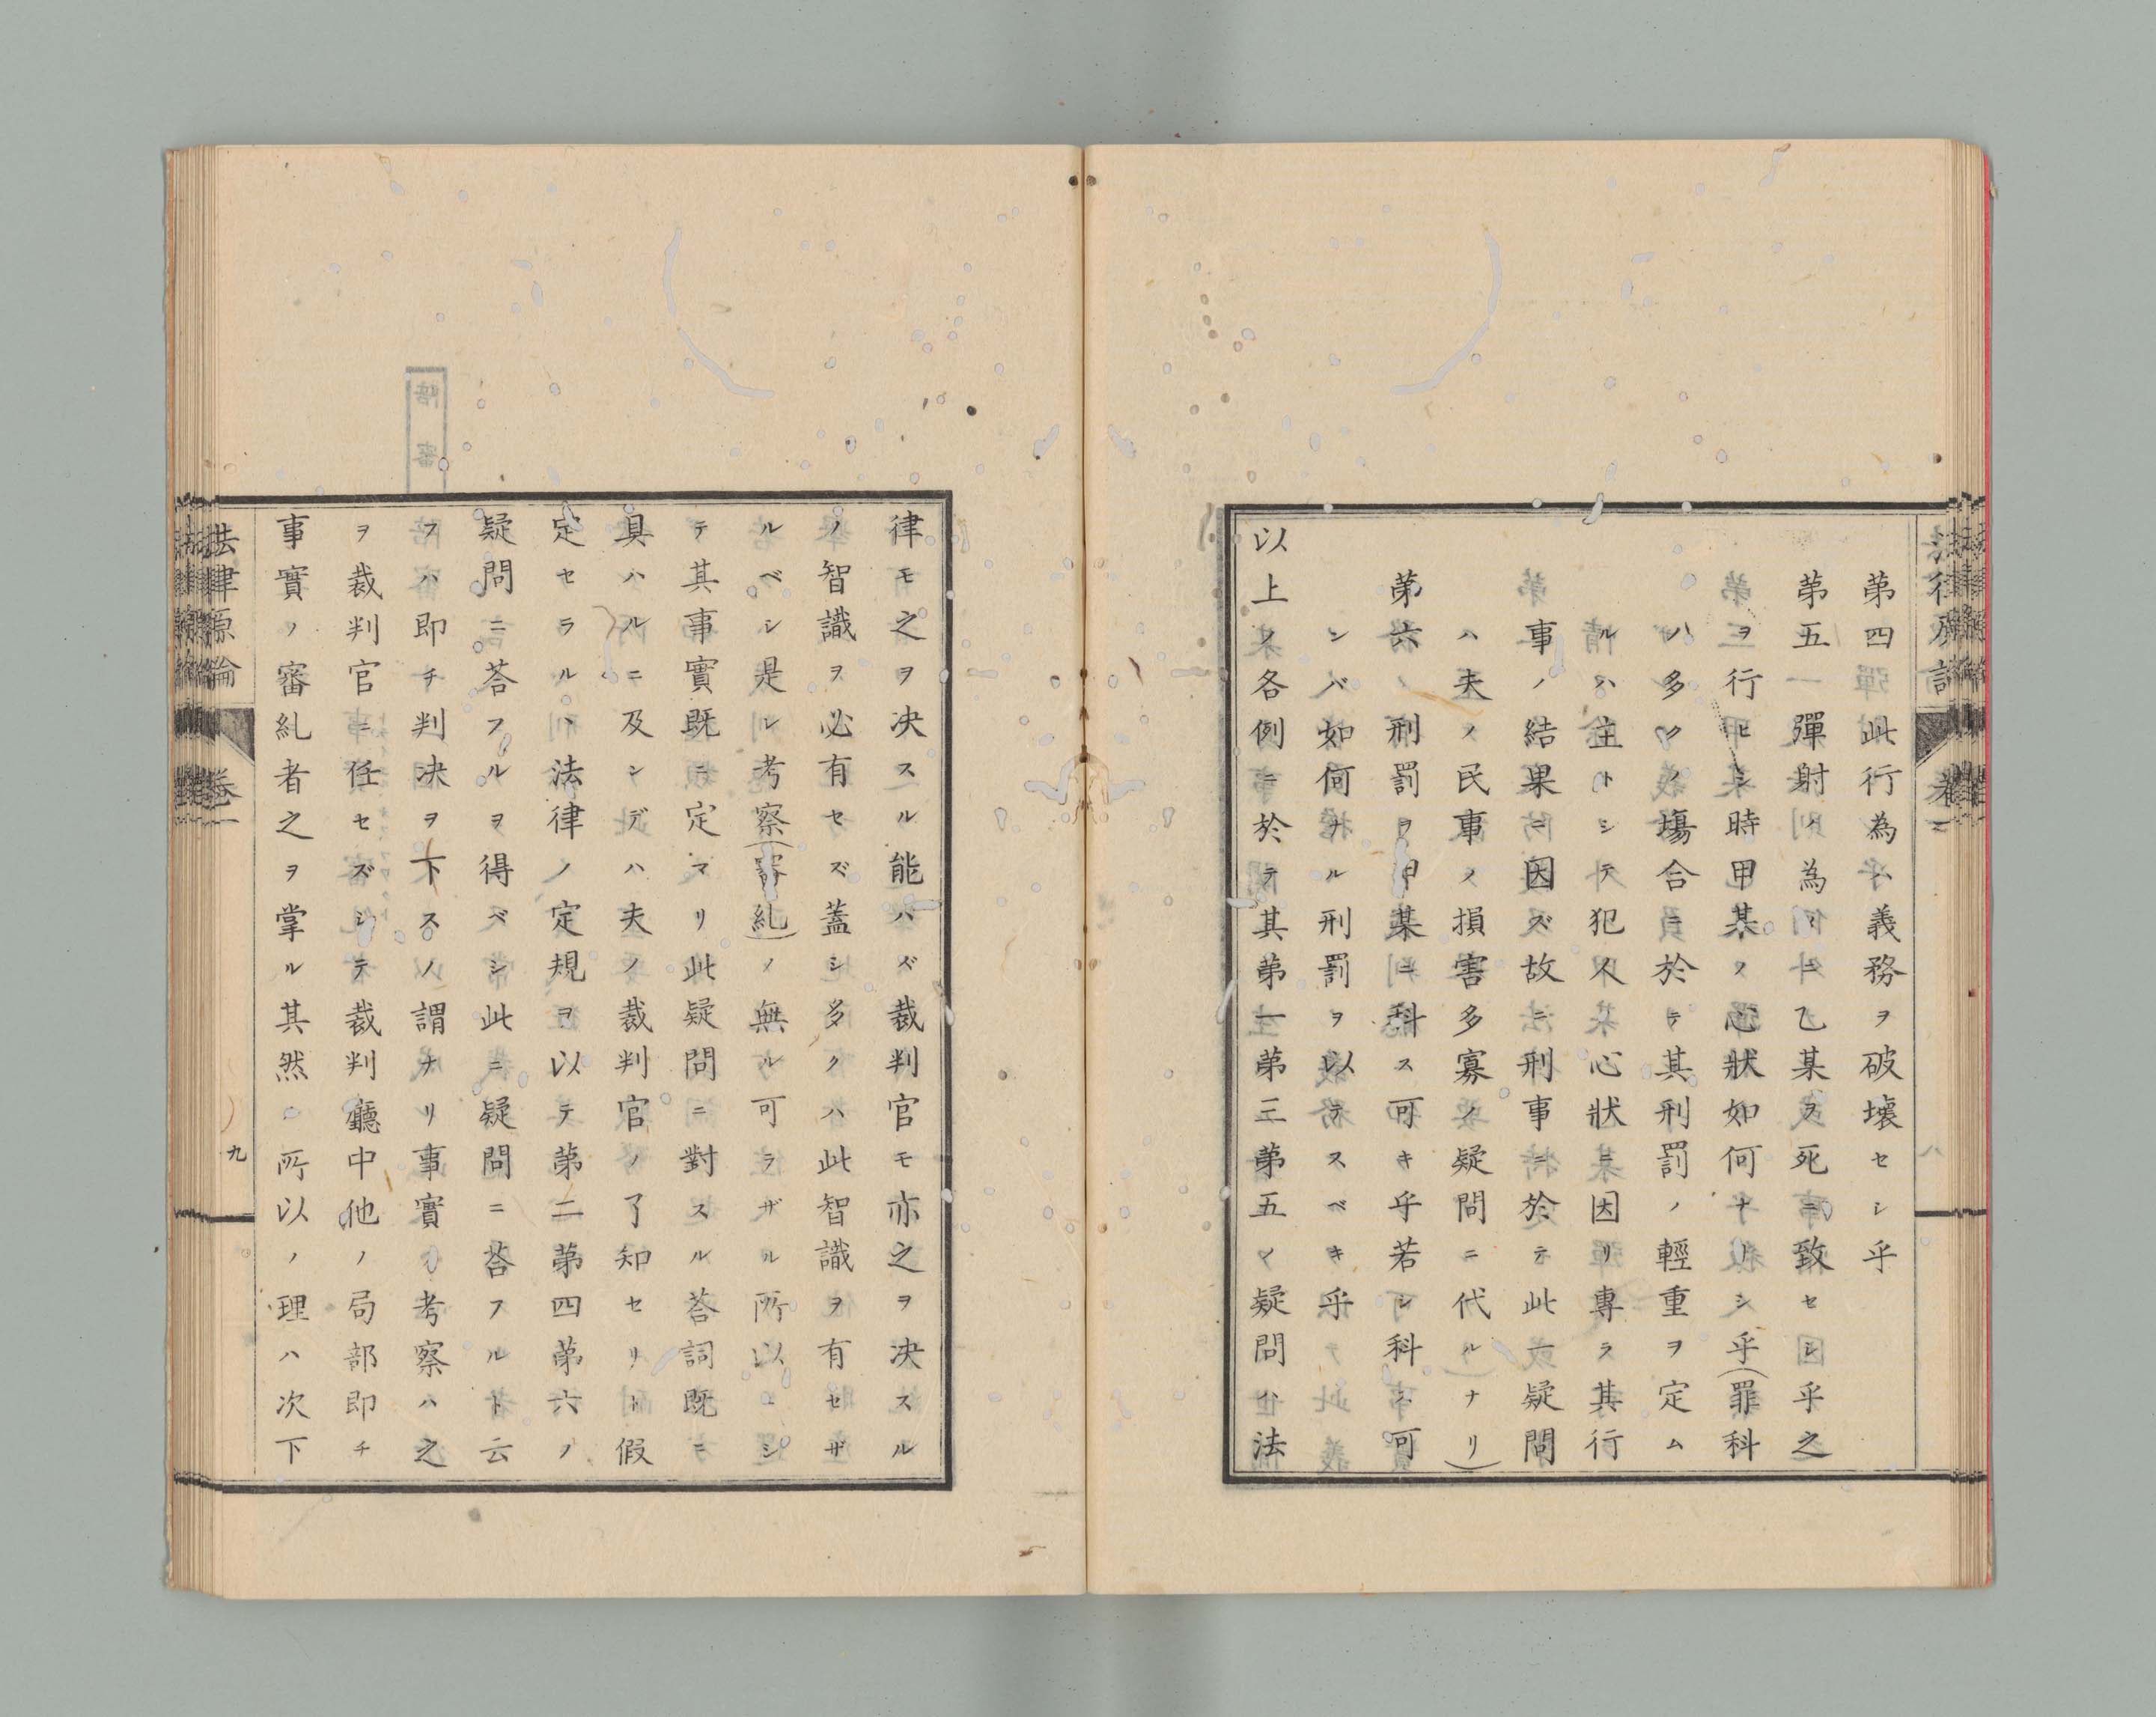 第四此行為ハ義務ヲ破壞セシ乎
第五彈射ノ為メニ乙某ヲ死ニ致セシ乎之
ヲ行ヒシ時甲某ノ心狀如何ナリシ乎(罪科
ハ多クノ塲合ニ於テ其刑罰ノ輕重ヲ定ム
ルハ主トシテ犯人心狀ニ因リ專ラ其行
事ノ結果ニ因ズ故ニ刑事ニ於テ此疑問
ハ夫ノ民事ノ損害多寡ノ疑問ニ代ルナリ)
第六刑罰ヲ甲某ニ科ス可キ乎若シ科ス可
シバ如何ナル刑罰ヲ以テスベキ乎
以上ノ各例ニ於テ其第一第三第五ノ疑問ハ法
律モ之ヲ决スル能ハズ裁判官モ亦之ヲ决スル
ノ智識ヲ必有セズ蓋シ多クハ此智識ヲ有セザ
ルベシ是レ考察(審糺)ノ無ル可ラザル所以ニシ
テ其事實既ニ定マリ此疑問ニ對スル荅詞既ニ
具ハルニ及ンデハ夫ノ裁判官ノ了知セリト假
定セラルヽ法律ノ定規ヲ以テ第二第四第六ノ
疑問ニ荅フルヲ得ベシ此ニ疑問ニ荅フルト云
フハ即チ判决ヲ下スノ謂ナリ事實ノ考察ハ之
ヲ裁判官ニ任セズシテ裁判廳中他ノ局部即チ
事實ノ審糺者之ヲ掌ル其然ル所以ノ理ハ次下
法律原論
卷一
九